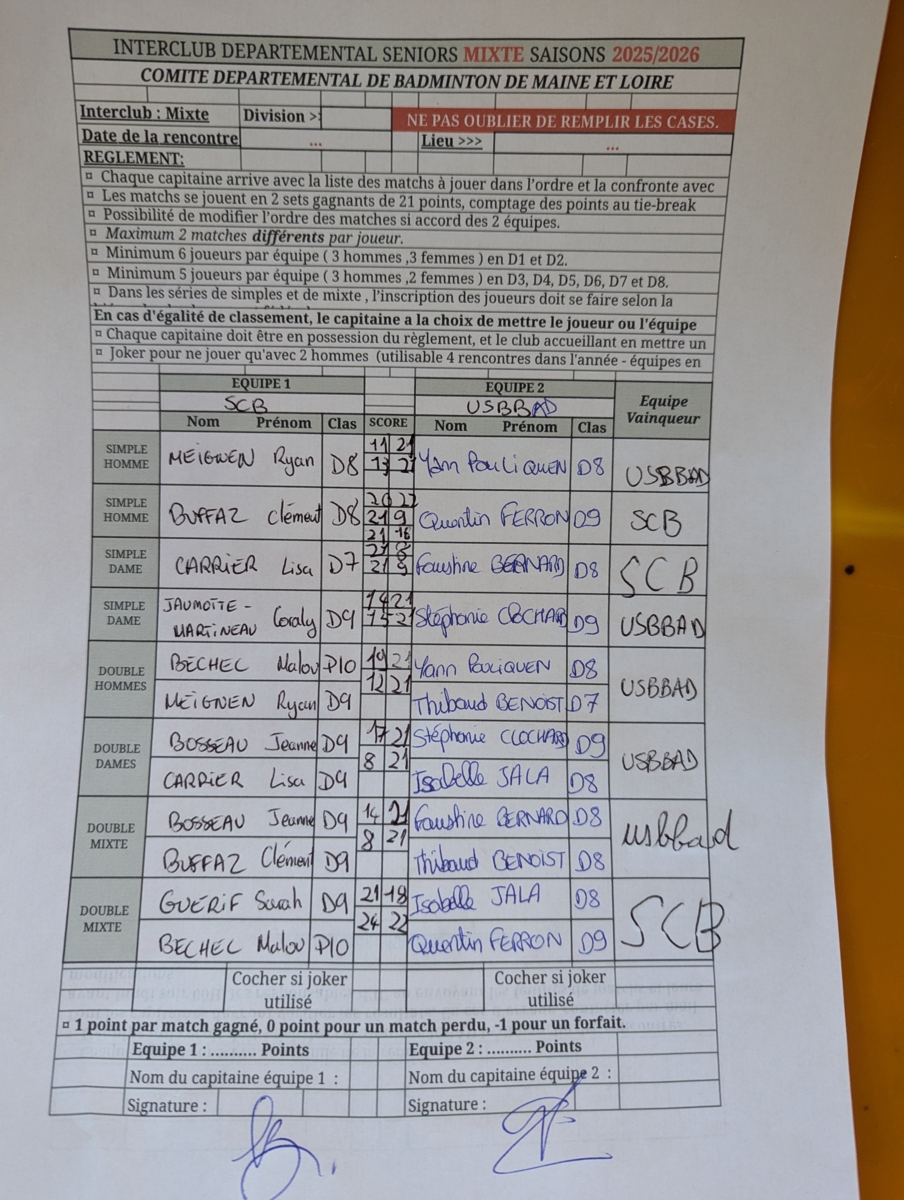 INTERCLUB DEPARTEMENTAL SENIORS MIXTE SAISONS 2025/2026
COMITE DEPARTEMENTAL DE BADMINTON DE MAINE ET LOIRE
Interclub : Mixte Division > NE PAS OUBLIER DE REMPLIR LES CASES.
Date de la rencontre ... Lieu >>> ...
REGLEMENT:
¤ Chaque capitaine arrive avec la liste des matchs à jouer dans l'ordre et la confronte avec
¤ Les matchs se jouent en 2 sets gagnants de 21 points, comptage des points au tie-break
¤ Possibilité de modifier l'ordre des matches si accord des 2 équipes.
¤ Maximum 2 matches différents par joueur.
¤ Minimum 6 joueurs par équipe ( 3 hommes ,3 femmes ) en D1 et D2.
¤ Minimum 5 joueurs par équipe ( 3 hommes ,2 femmes ) en D3, D4, D5, D6, D7 et D8.
¤ Dans les séries de simples et de mixte , l'inscription des joueurs doit se faire selon la
En cas d'égalité de classement, le capitaine a la choix de mettre le joueur ou l'équipe
¤ Chaque capitaine doit être en possession du règlement, et le club accueillant en mettre un
¤ Joker pour ne jouer qu'avec 2 hommes (utilisable 4 rencontres dans l'année - équipes en
EQUIPE 1 EQUIPE 2 Equipe Vainqueur
SCB USBBAD
Nom Prénom Clas SCORE Nom Prénom Clas
SIMPLE HOMME MEIGNEN Ryan D8 11 21 Yann POULIQUEN D8 USBBAD
13 21
SIMPLE HOMME BUFFAZ Clément D8 20 22 Quentin FERRON D9 SCB
21 9
21 16
SIMPLE DAME CARRIER Lisa D7 21 8 Faustine BERNARD D8 SCB
21 9
SIMPLE DAME JAUMOITE - MARTINEAU Coraly D9 14 21 Stéphanie CLOCHARD D9 USBBAD
15 21
DOUBLE HOMMES BECHEC Malou P10 10 21 Yann POULIQUEN D8 USBBAD
MEIGNEN Ryan D9 12 21 Thibaud BENOIST D7
DOUBLE DAMES BOSSEAU Jeanne D9 17 21 Stéphanie CLOCHARD D9 USBBAD
CARRIER Lisa D9 8 21 Isabelle JALA D8
DOUBLE MIXTE BOSSEAU Jeanne D9 14 21 Faustine BERNARD D8 usbbad
BUFFAZ Clément D9 8 21 Thibaud BENOIST D8
DOUBLE MIXTE GUERIF Sarah D9 21 18 Isabelle JALA D8 SCB
BECHEC Malou P10 24 22 Quentin FERRON D9
Cocher si joker utilisé Cocher si joker utilisé
¤ 1 point par match gagné, 0 point pour un match perdu, -1 pour un forfait.
Equipe 1 : .......... Points Equipe 2 : .......... Points
Nom du capitaine équipe 1 : Nom du capitaine équipe 2 :
Signature : Signature :